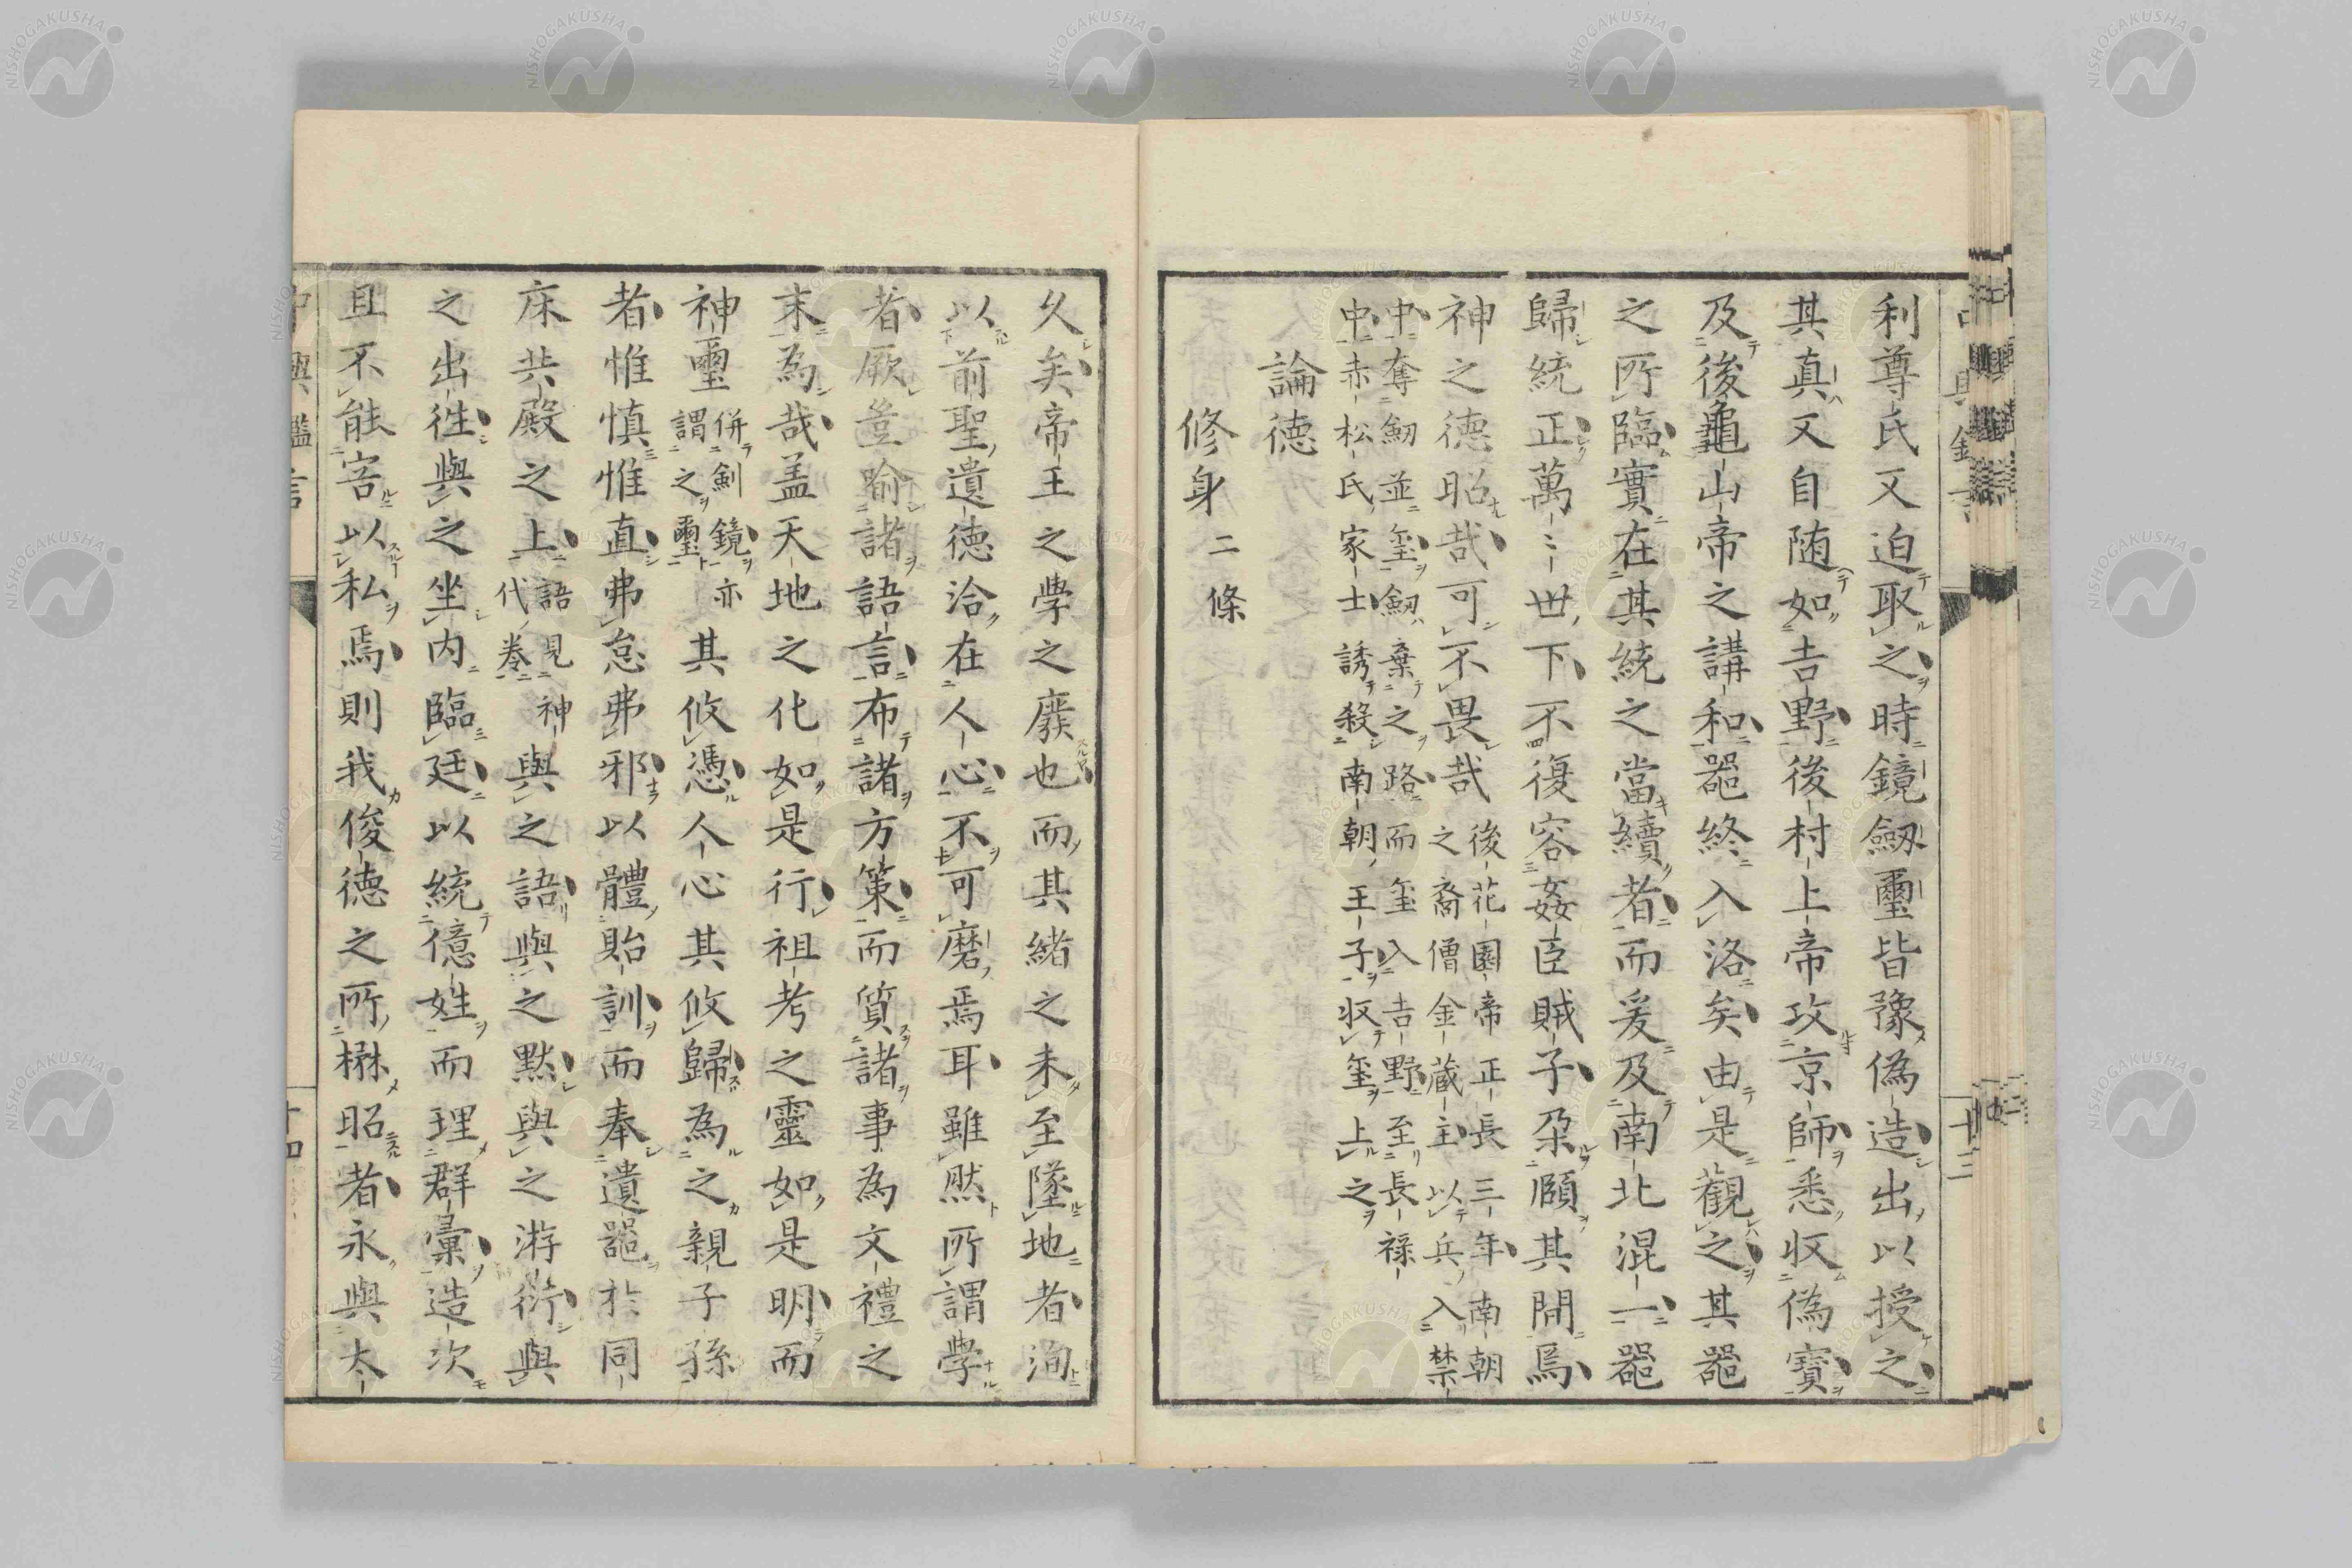 利尊氏又迫取之時鏡劔璽皆豫偽造出以授之
其真又自随如吉野後村上帝攻京師悉収偽寶
及後龜山帝之講和器終入洛矣由是觀之其器
之所臨實在其統之當續者而爰及南北混一器
歸統正萬〻世下不復容姦臣賊子朶頤其間焉
神之徳昭哉可不畏哉
後花園帝正長三年南朝
之裔僧金蔵主以兵入禁
中奪劔並璽劔棄之路而璽入吉野至長禄
中赤松氏家士誘殺南朝王子収璽上之
論徳
修身二條
久矣帝王之學之廢也而其緒之未至墜地者洵
以前聖遺徳洽在人心不可磨焉耳雖然所謂學
者厥豈踰諸語言布諸方策而質諸事為文禮之
末為哉盖天地之化如是行祖考之靈如是明而
神璽
併劍鏡亦
謂之璽
其攸憑人心其攸歸為之親子孫
者惟慎惟直弗怠弗邪以體貽訓而奉遺器於同
床共殿之上
語見神
代巻
與之語與之黙與之游衍與
之出徃與之坐内臨廷以統億姓而理群彙造次
且不能害以私焉則我俊徳之所楙昭者永與太
中興鑑言
十四
十三
NISHOGAKUSHA